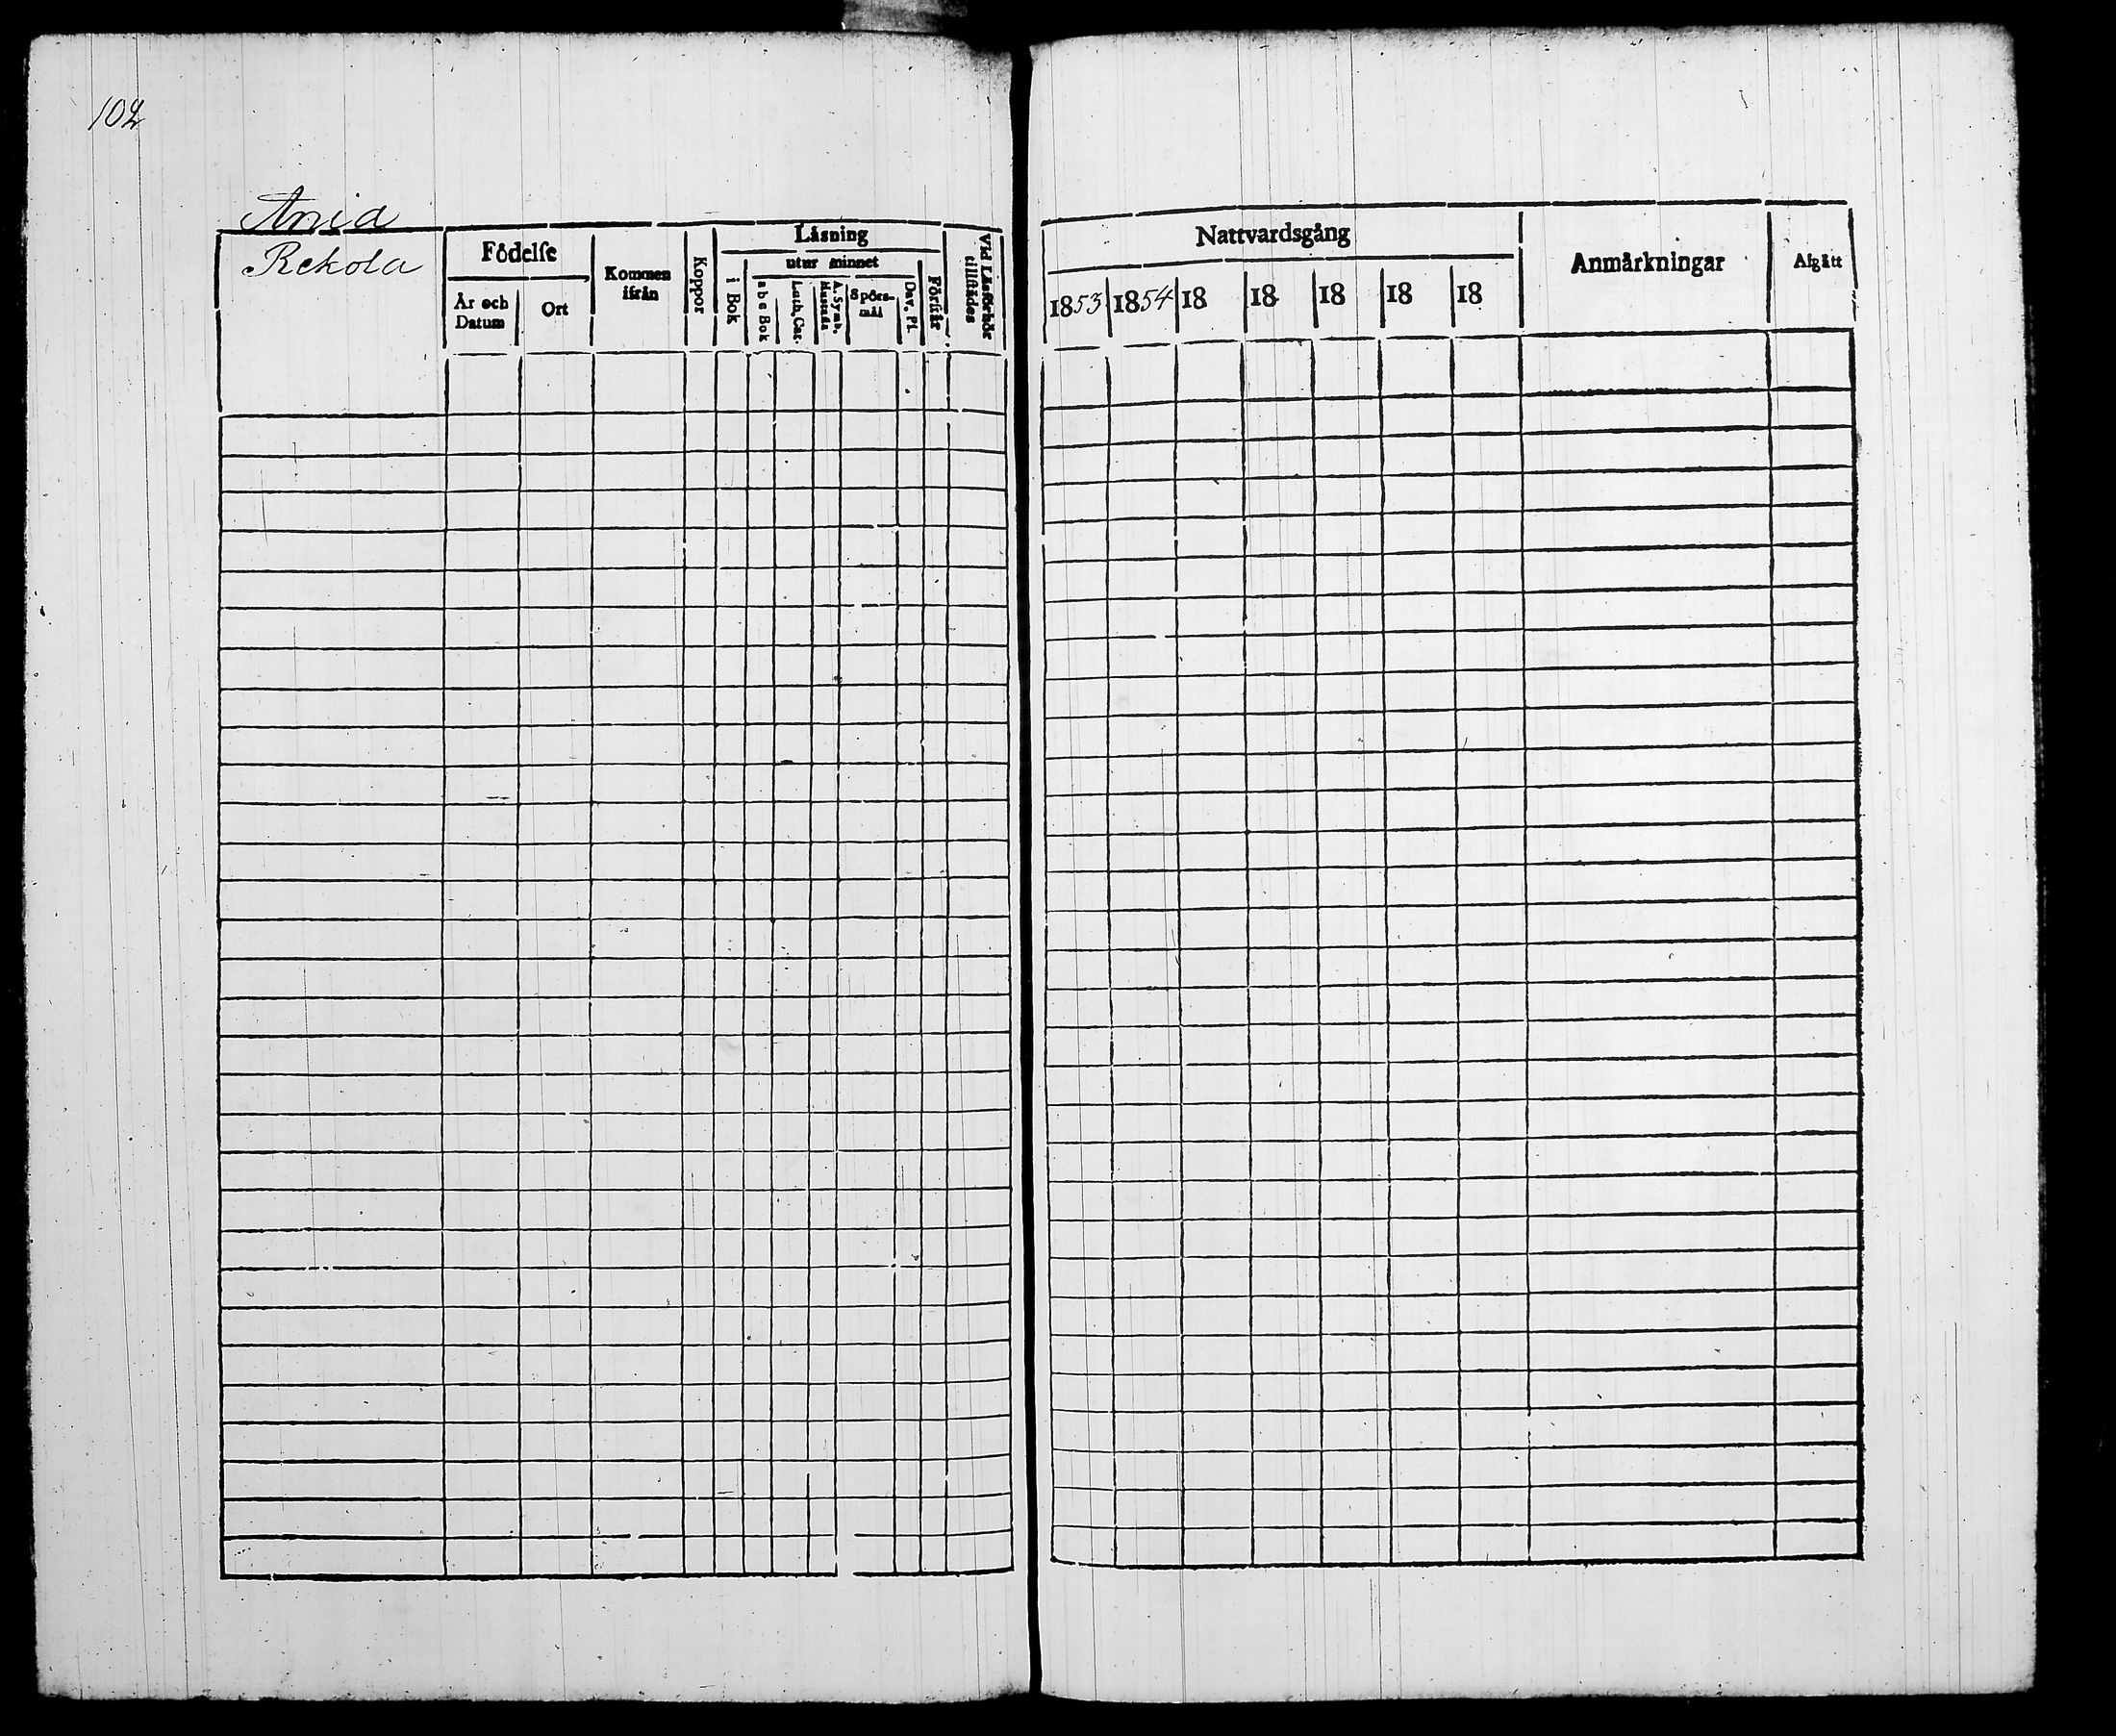 102
Arvia
Rekola
Födelse
År och Datum
Ort
Kommen ifrån
Koppor
Läsning
i Bok
utur minnet
a b c Bok
Luth. Cat.
A. Symb.
Spörsmål
Dav. Ps.
Förstår
Vid Läsförhör tillstädes
Nattvardsgång
1853 1854 18 18 18 18 18
Anmärkningar
Afgått